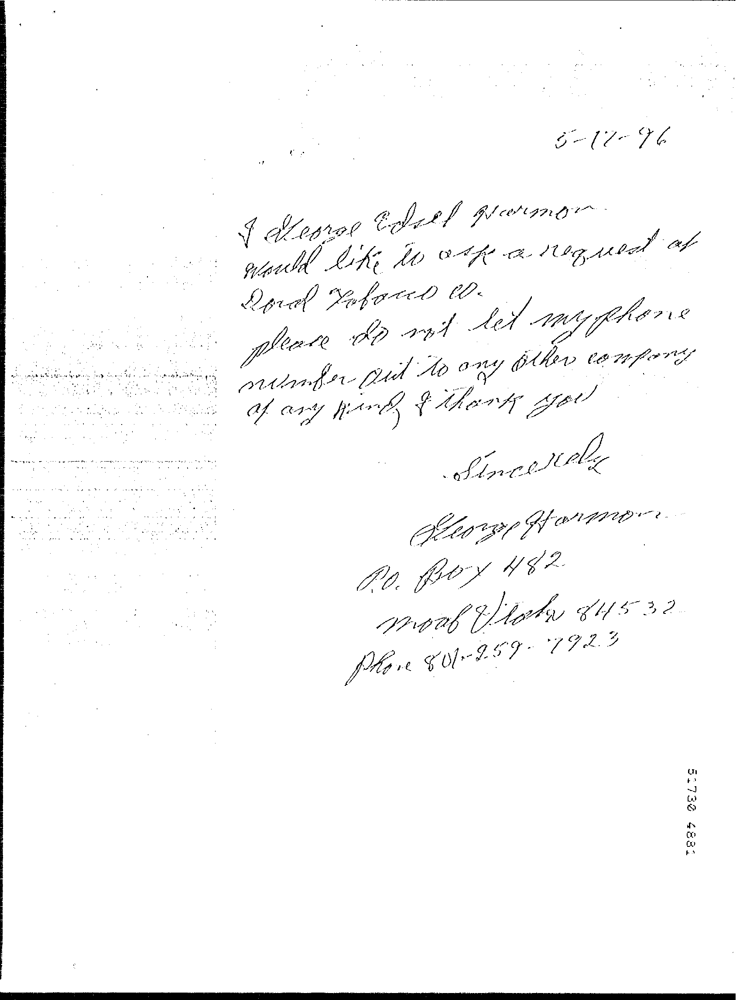 5-17-96
I George Edsel Harmon
would like to ask a request of
Doral Tobacco co.
please do not let my phone
number out to any other company
of any kind, I thank you
Sincerely
George Harmon
P.O. Box 482
Moab Utah 84532
Phone 801-259-7923
51730 4881